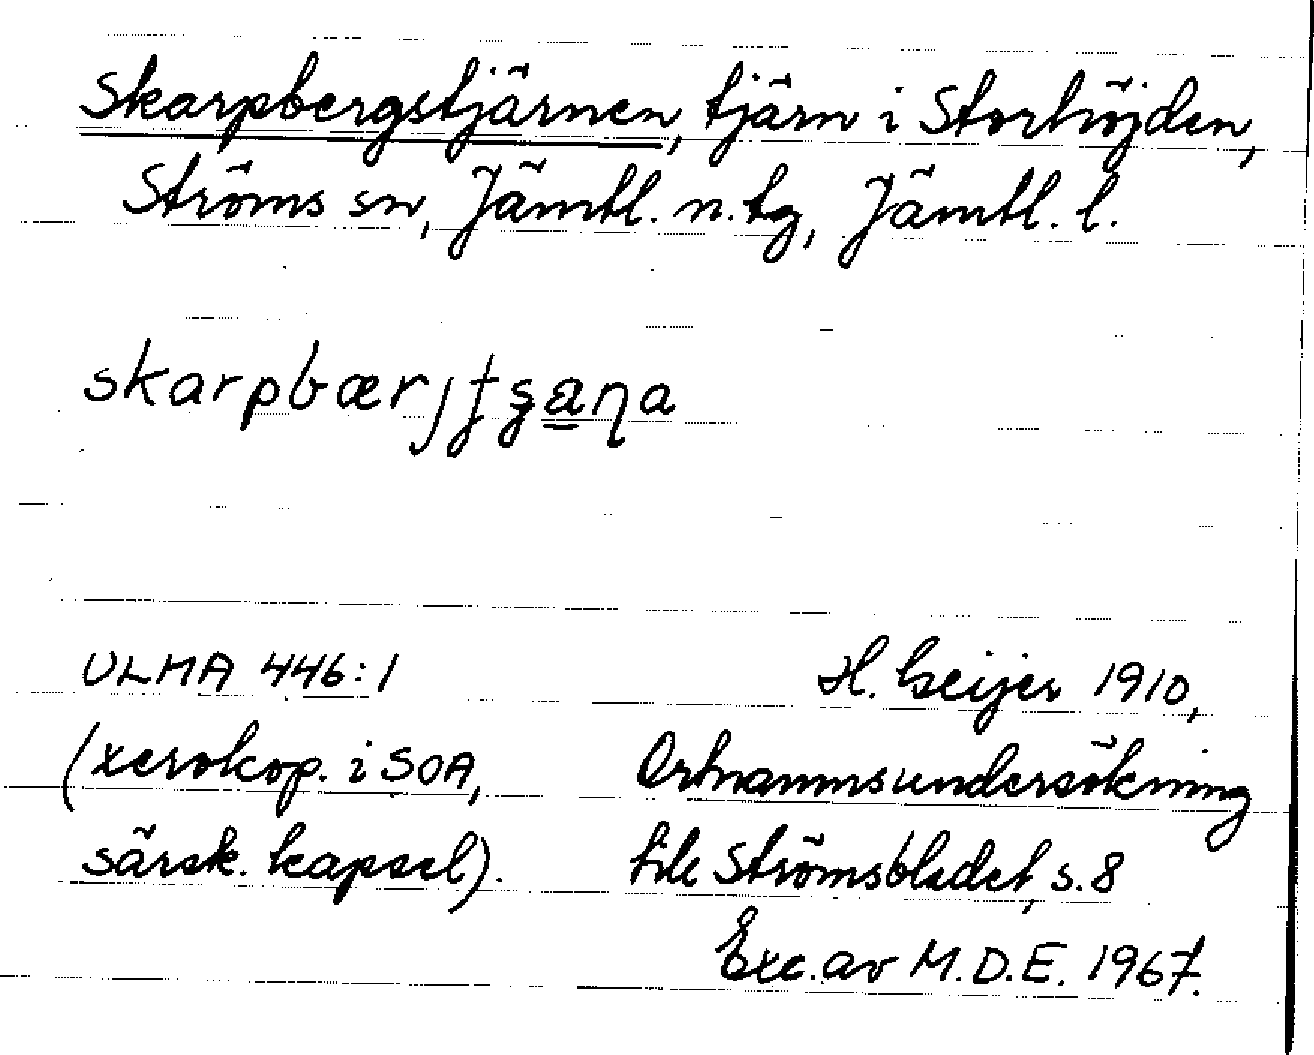 Skarpbergstjärnen, tjärn i Storhöjden,
Ströms sn, Jämtl. n. tg, Jämtl. l.
ULMA 446:1
(xerokop. i SOA,
särsk. kapsel).
H. Geijer 1910,
Ortnamnsundersökning
till Strömsbladet, s. 8
Exc. av M.D.E. 1967.